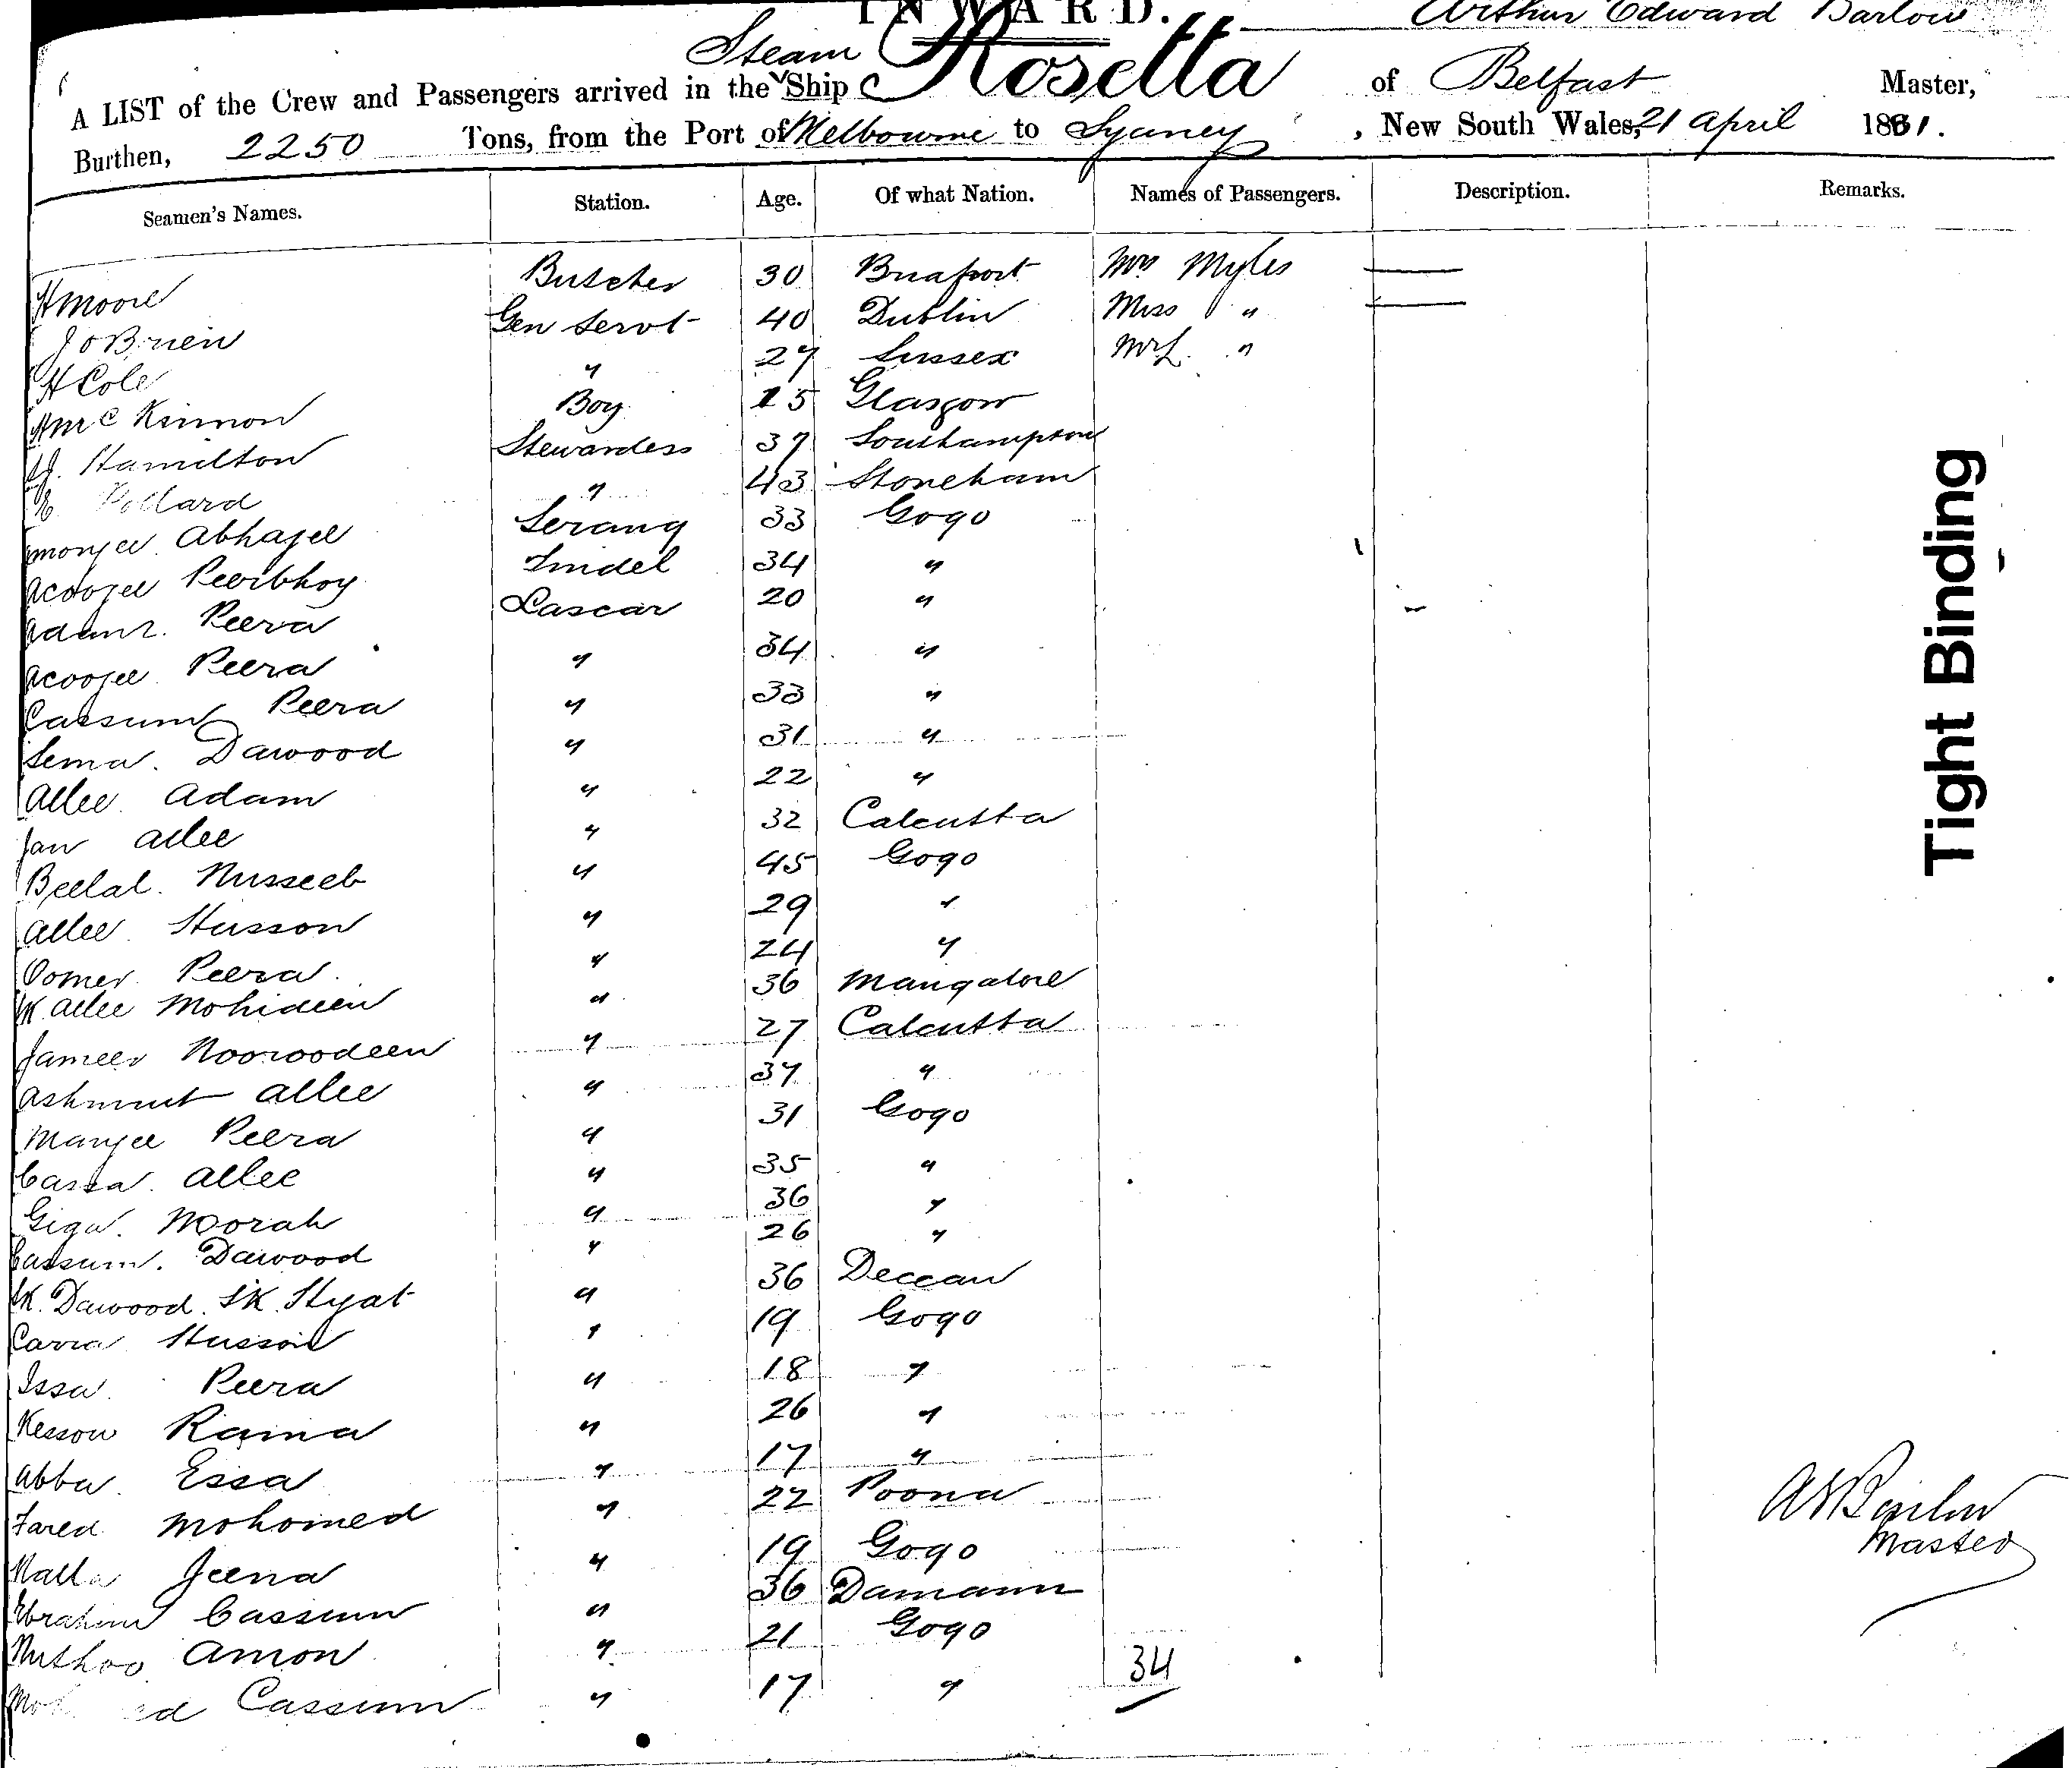 INWARD.
Arthur Edward Barlow
Steam
A LIST of the Crew and Passengers arrived in the Ship Rosetta of Belfast Master,
Burthen, 2250 Tons, from the Port of Melbourne to Sydney, New South Wales, 21 April 1881.
Seamen's Names. Station. Age. Of what Nation. Names of Passengers. Description. Remarks.
H Moore Butcher 30 Mrs Myles
J O Brien Gen Servt 40 Dublin Miss "
H Cole " 27 Sussex "
McKinnon Boy 15 Glasgow
Hamilton Stewardess 37 Southampton
Pollard " 43 Stoneham
Abhajee Serang 33 Gogo
Acoojee Peeribhoy Tindel 34 "
Adam Peera Lascar 20 "
Acoojee Peera " 34 "
Cassum Peera " 33 "
Sema Dawood " 31 "
Allee Adam " 22 "
Jan Allee " 32 Calcutta
Beelal Nusseeb " 45 Gogo
Allee Husson " 29 "
Oomer Peera " 24 "
Sk Allee Mohideen " 36 Mangalore
Jameer Nooroodeen " 27 Calcutta
Ashmut Allee " 37 "
Manjee Peera " 31 Gogo
Cassa Allee " 35 "
Giga Moorah " 36 "
Cassum Dawood " 26 "
Sk. Dawood Sk Hyat " 36 Deccan
Carra Husson " 19 Gogo
Issa Peera " 18 "
Kesson Rama " 26 "
Abba Essa " 17 "
Fared Mohomed " 22 Poona
Nalla Jeena " 19 Gogo
Ebrahim Cassum " 36 Damaun
Nuthoo Amon " 21 Gogo
Cassum " 17 "
34
A E Barlow
Master
Tight Binding